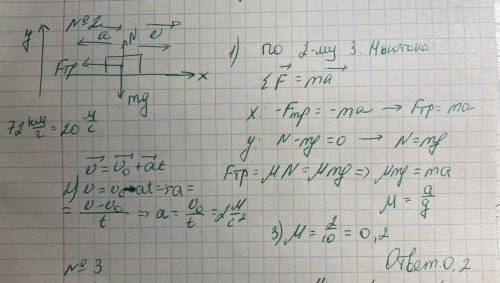 №2
y
a
N
v
Fтр
x
mg
72 км/ч = 20 м/с
1) по 2-му З. Ньютона
ΣF = ma
x: -Fтр = -ma → Fтр = ma
y: N - mg = 0 → N = mg
Fтр = μN = μmg => μmg = ma
μ = a/g
v = v₀ + at
2) v = v₀ - at -> a =
= (v - v₀)/t => a = v₀/t = 2 м/с²
3) μ = 2/10 = 0,2
Ответ: 0,2
№3